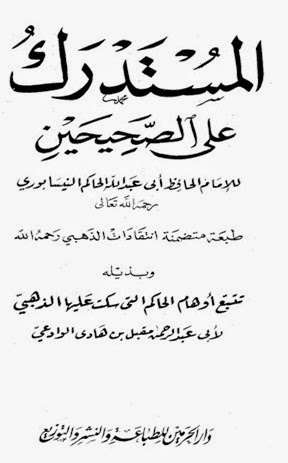 المستدرك
على الصحيحين
للامام الحافظ أبي عبد الله الحاكم النيسابوري
رحمه الله تعالى
طبعة متضمنة انتقادات الذهبي رحمه الله
وبذيله
تتبع أوهام الحاكم التي سكت عليها الذهبي
لأبي عبد الرحمن مقبل بن هادي الوادعي
دار الحرمين للطباعة والنشر والتوزيع